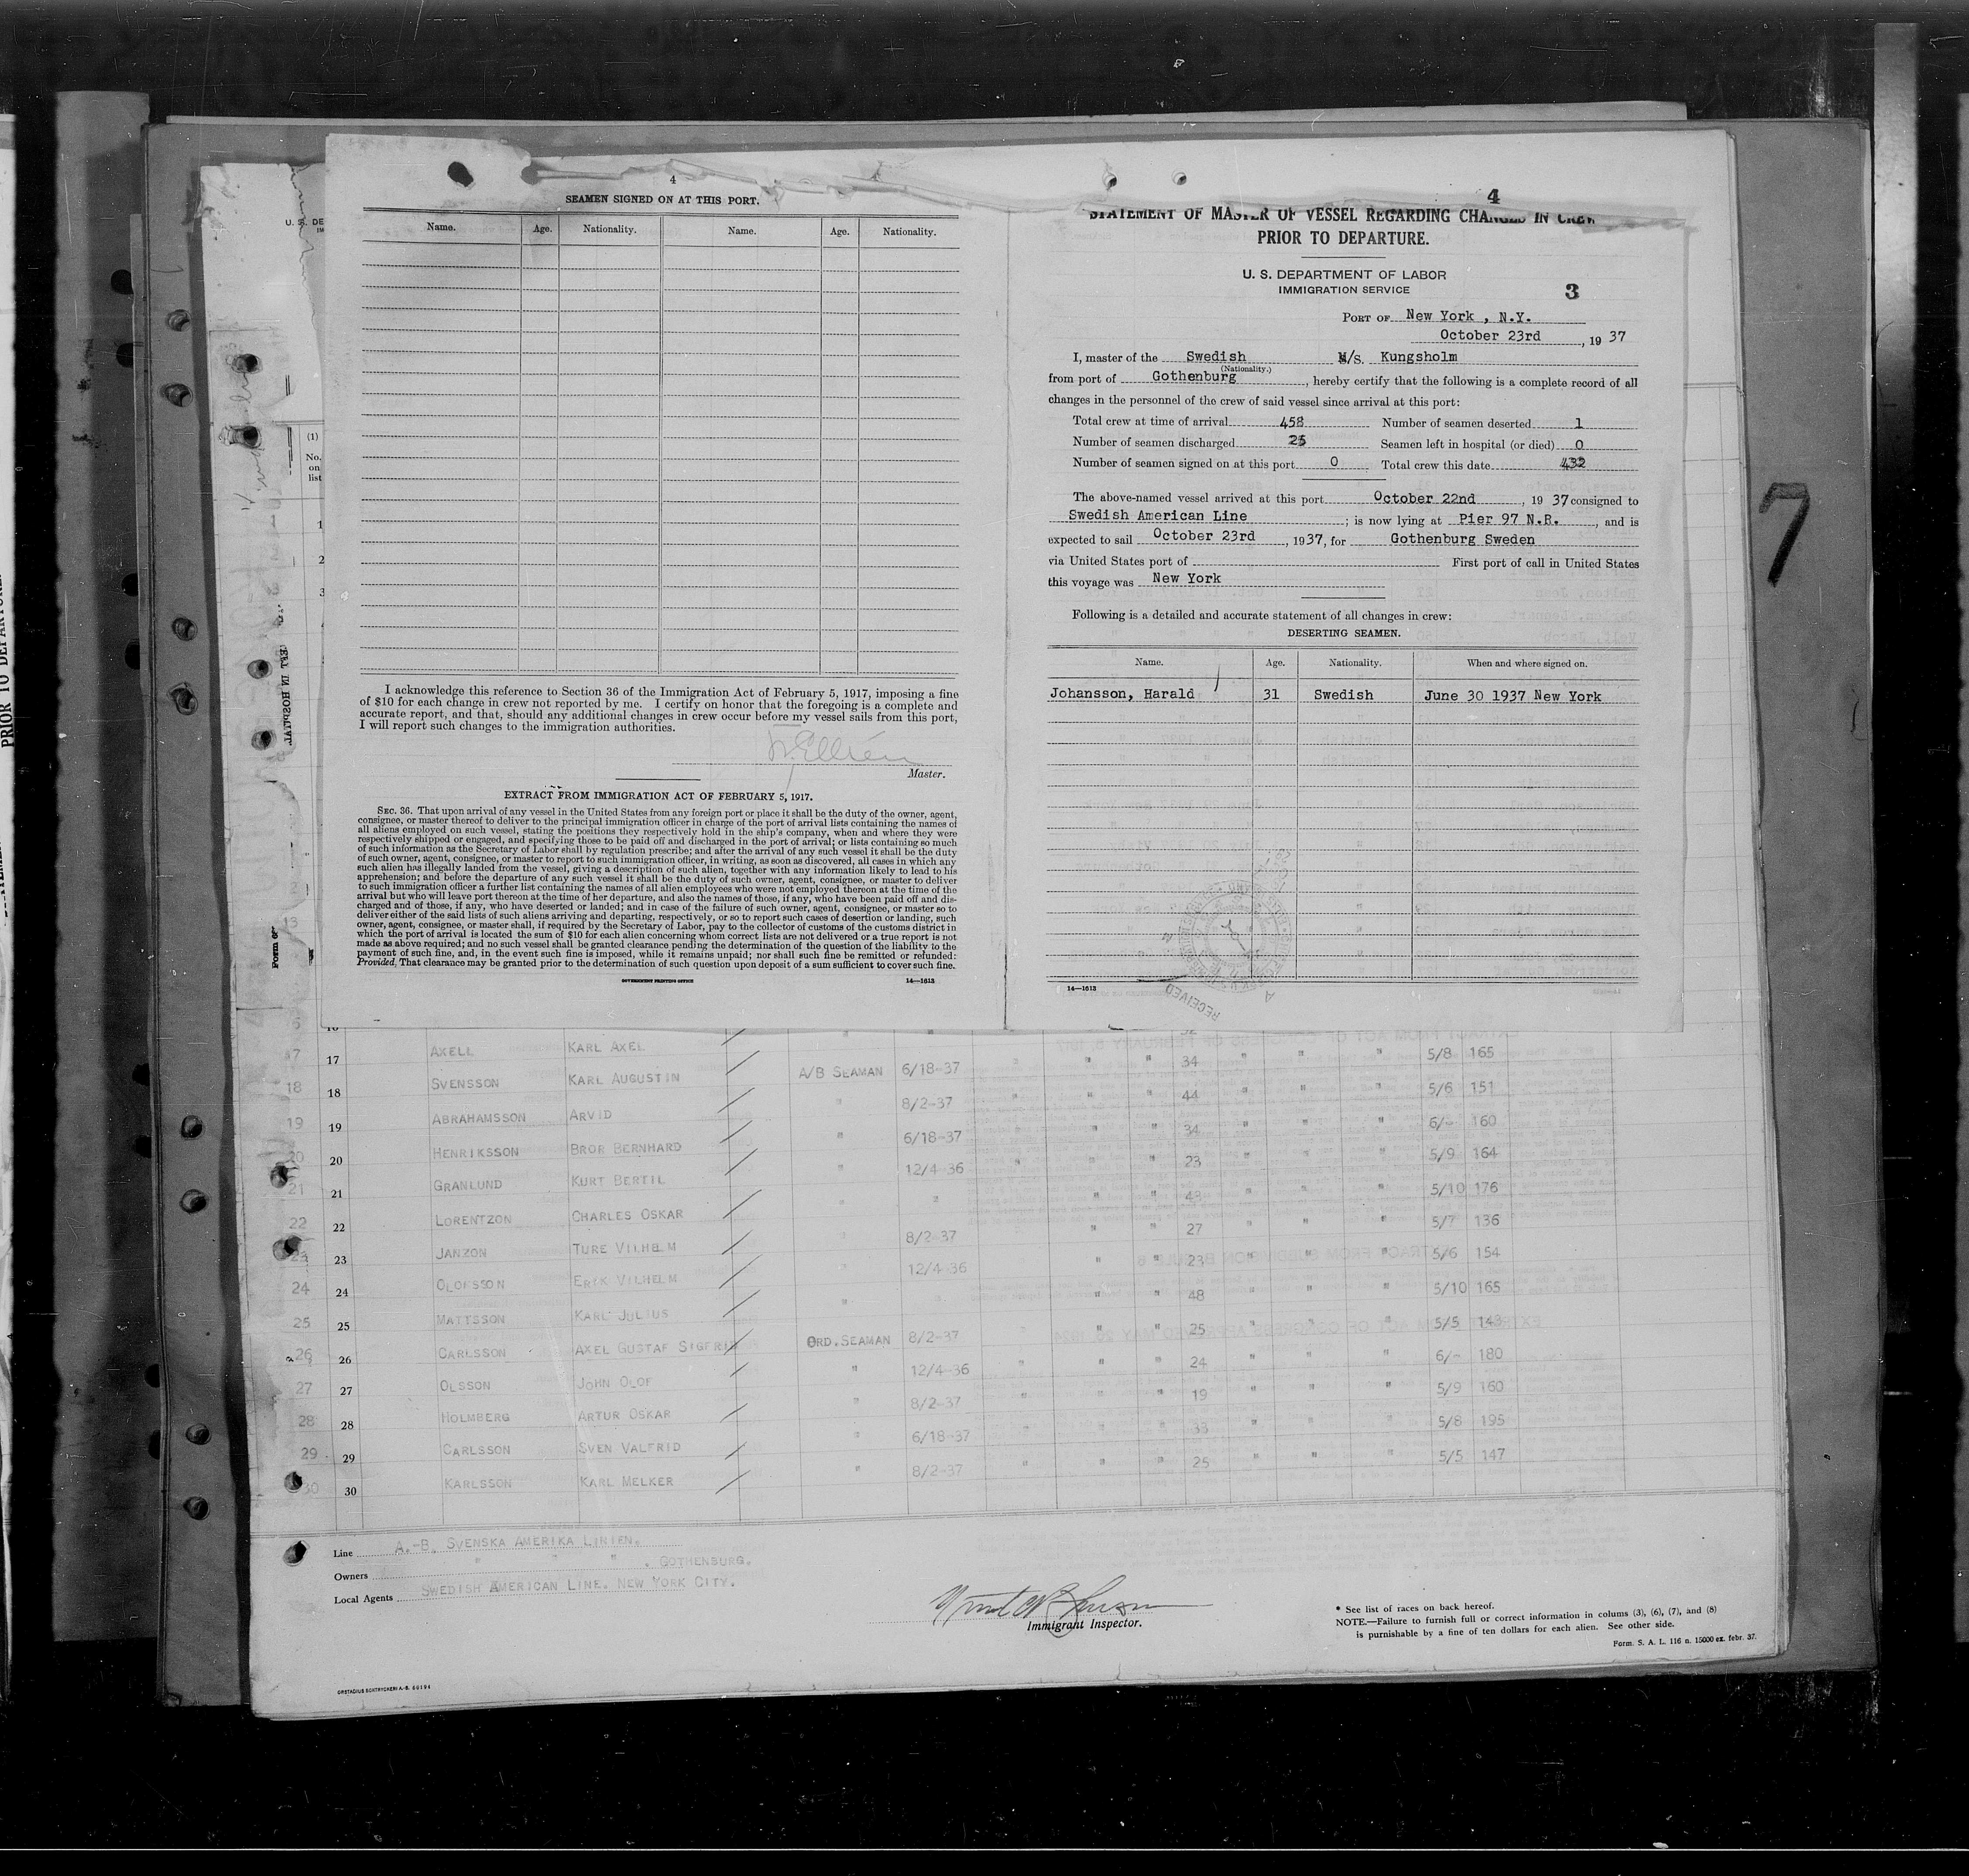 4
SEAMEN SIGNED ON AT THIS PORT.
Name. Age. Nationality. Name. Age. Nationality.
I acknowledge this reference to Section 36 of the Immigration Act of February 5, 1917, imposing a fine
of $10 for each change in crew not reported by me. I certify on honor that the foregoing is a complete and
accurate report, and that, should any additional changes in crew occur before my vessel sails from this port,
I will report such changes to the immigration authorities.
Master.
EXTRACT FROM IMMIGRATION ACT OF FEBRUARY 5, 1917.
SEC. 36. That upon arrival of any vessel in the United States from any foreign port or place it shall be the duty of the owner, agent,
consignee, or master thereof to deliver to the principal immigration officer in charge of the port of arrival lists containing the names of
all aliens employed on such vessel, stating the positions they respectively hold in the ship's company, when and where they were
respectively shipped or engaged, and specifying those to be paid off and discharged in the port of arrival; or lists containing so much
of such information as the Secretary of Labor shall by regulation prescribe; and after the arrival of any such vessel it shall be the duty
of such owner, agent, consignee, or master to report to such immigration officer, in writing, as soon as discovered, all cases in which any
such alien has illegally landed from the vessel, giving a description of such alien, together with any information likely to lead to his
apprehension; and before the departure of any such vessel it shall be the duty of such owner, agent, consignee, or master to deliver
to such immigration officer a further list containing the names of all alien employees who were not employed thereon at the time of the
arrival but who will leave port thereon at the time of her departure, and also the names of those, if any, who have been paid off and dis-
charged and of those, if any, who have deserted or landed; and in case of the failure of such owner, agent, consignee, or master so to
deliver either of the said lists of such aliens arriving and departing, respectively, or so to report such cases of desertion or landing, such
owner, agent, consignee, or master shall, if required by the Secretary of Labor, pay to the collector of customs of the customs district in
which the port of arrival is located the sum of $10 for each alien concerning whom correct lists are not delivered or a true report is not
made as above required; and no such vessel shall be granted clearance pending the determination of the question of the liability to the
payment of such fine, and, in the event such fine is imposed, while it remains unpaid; nor shall such fine be remitted or refunded:
Provided, That clearance may be granted prior to the determination of such question upon deposit of a sum sufficient to cover such fine.
GOVERNMENT PRINTING OFFICE 14—1613
4
STATEMENT OF MASTER OF VESSEL REGARDING CHANGES IN CREW
PRIOR TO DEPARTURE.
U. S. DEPARTMENT OF LABOR
IMMIGRATION SERVICE
3
PORT OF New York , N.Y.
October 23rd , 1937
I, master of the Swedish M/S. Kungsholm
(Nationality.)
from port of Gothenburg , hereby certify that the following is a complete record of all
changes in the personnel of the crew of said vessel since arrival at this port:
Total crew at time of arrival 458 Number of seamen deserted 1
Number of seamen discharged 25 Seamen left in hospital (or died) 0
Number of seamen signed on at this port 0 Total crew this date 432
The above-named vessel arrived at this port October 22nd , 1937 consigned to
Swedish American Line ; is now lying at Pier 97 N.R. , and is
expected to sail October 23rd , 1937, for Gothenburg Sweden
via United States port of First port of call in United States
this voyage was New York
Following is a detailed and accurate statement of all changes in crew:
DESERTING SEAMEN.
Name. Age. Nationality. When and where signed on.
Johansson, Harald 31 Swedish June 30 1937 New York
14—1613
RECEIVED
7
(1)
No.
on
list
17 AXELL KARL AXEL 34 " " " 5/8 165
18 SVENSSON KARL AUGUSTIN A/B SEAMAN 6/18-37 " " " 44 " " " 5/6 151
19 ABRAHAMSSON ARVID " 8/2-37 " " " 34 " " " 6/- 160
20 HENRIKSSON BROR BERNHARD " 6/18-37 " " 23 " " " 5/9 164
21 GRANLUND KURT BERTIL " 12/4-36 " " " 48 " " " 5/10 176
22 LORENTZON CHARLES OSKAR " " " " 27 " " " 5/7 136
23 JANZON TURE VILHELM " 8/2-37 " " 23 " " " 5/6 154
24 OLOFSSON ERIK VILHELM " 12/4-36 " " 48 " " " 5/10 165
25 MATTSSON KARL JULIUS " " " " 25 " " " 5/5 143
26 CARLSSON AXEL GUSTAF SIGFRID ORD.SEAMAN 8/2-37 " " 24 " " " 6/- 180
27 OLSSON JOHN OLOF " 12/4-36 " " " 19 " " " 5/9 160
28 HOLMBERG ARTUR OSKAR " 8/2-37 " " " 33 " " " 5/8 195
29 CARLSSON SVEN VALFRID " 6/18-37 " " " 25 " " " 5/5 147
30 KARLSSON KARL MELKER " 8/2-37
Line A.-B. SVENSKA AMERIKA LINIEN.
Owners " " " . GOTHENBURG.
Local Agents SWEDISH AMERICAN LINE. NEW YORK CITY.
Immigrant Inspector.
* See list of races on back hereof.
NOTE.—Failure to furnish full or correct information in colums (3), (6), (7), and (8)
is purnishable by a fine of ten dollars for each alien. See other side.
Form. S. A. L. 116 n. 15000 ex. febr. 37.